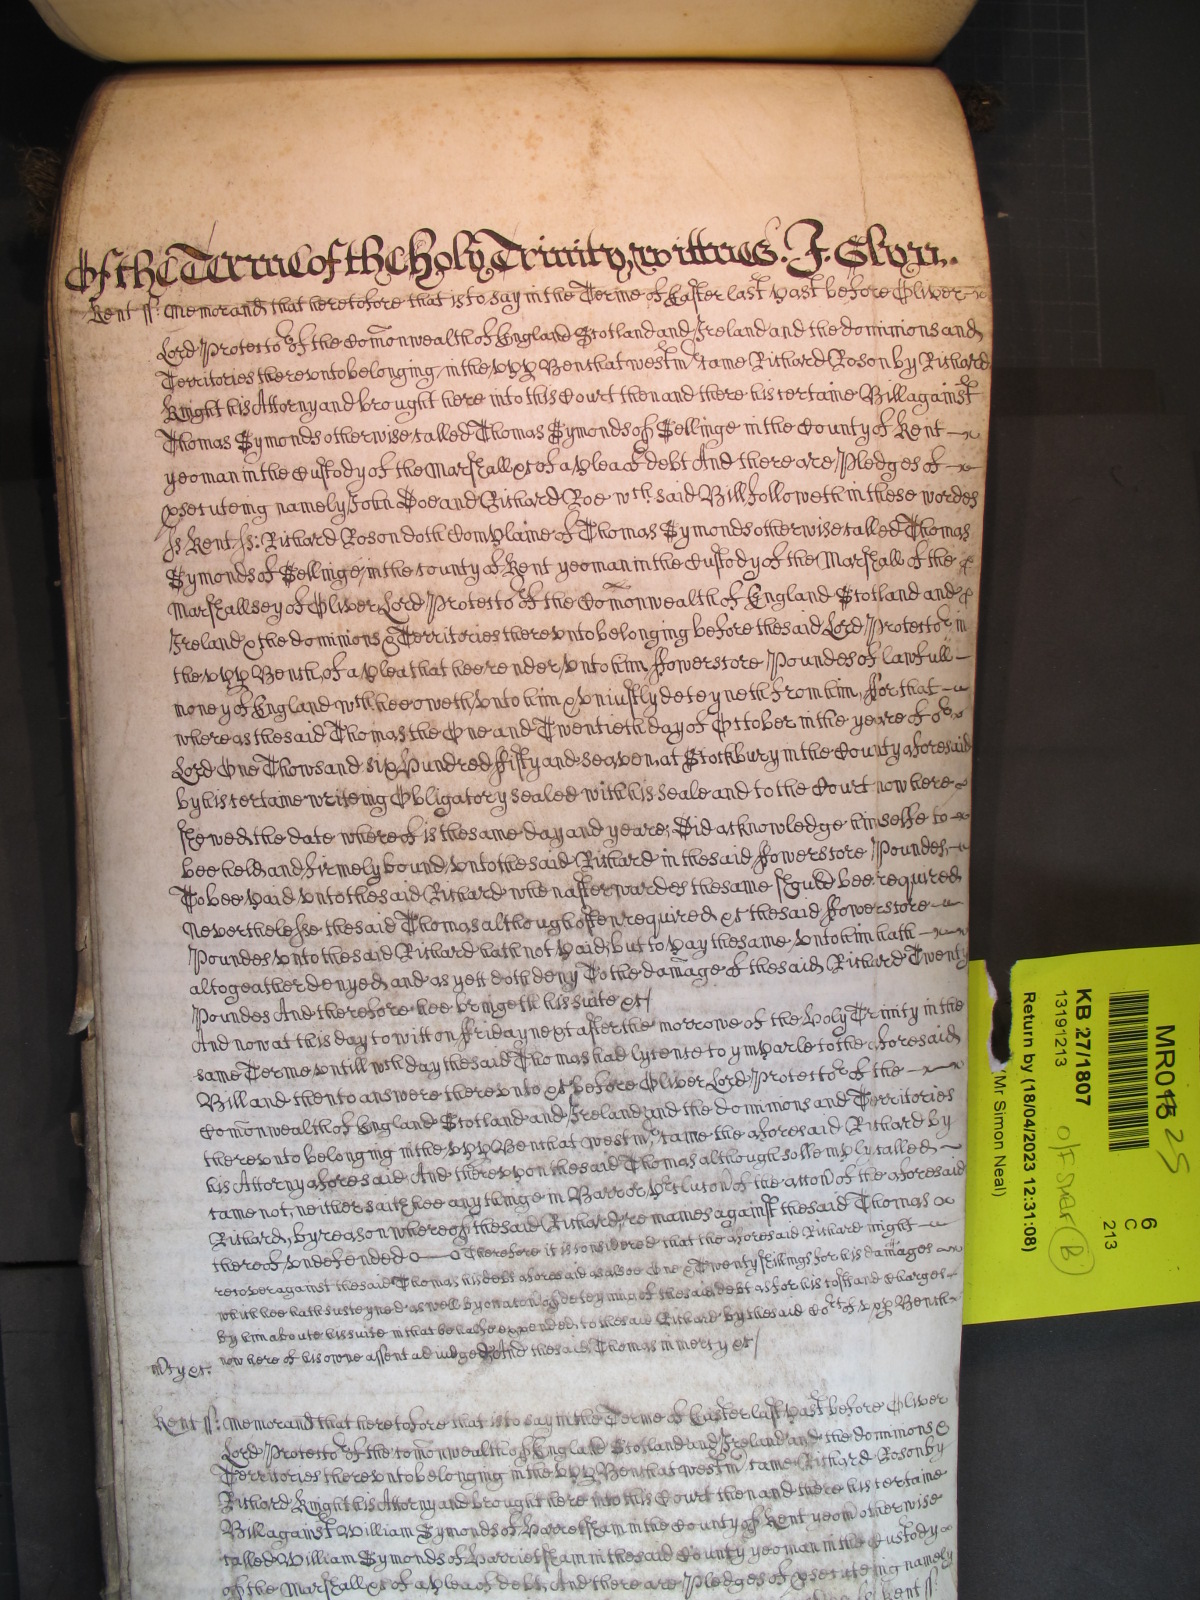 Of the Terme of the Holy Trinity, wittnes. J. Glyn.
Kent ss: Memorand that heretofore that is to say in the Terme of Easter last past before Oliver
Lord Protector of the Comonwealth of England Scotland and Ireland and the dominions and
Territories therevnto belonging in the vpp Bench at westmr came Richard Roson by Richard
Knight his Attorny and brought here into this Court then and there his certaine Bill against
Thomas Symonds otherwise called Thomas Symonds of Sellinge in the County of Kent
yeoman in the Custody of the Marshall &c of a plea of debt And there are Pledges of
prsecuteing namely John Doe and Richard Roe wch said Bill followeth in these wordes
ss Kent ss: Richard Roson doth Complaine of Thomas Symonds otherwise called Thomas
Symonds of Sellinge in the county of Kent yeoman in the Custody of the Marshall of the
Marshallsey of Oliver Lord Protector of the Comonwealth of England Scotland and
Ireland & the dominions & Territories therevnto belonging before the said Lord Protector in
the vpp Bench, of a plea that hee render vnto him fowerscore Poundes of lawfull
money of England wch hee oweth vnto him & vniustly deteyneth from him, for that
whereas the said Thomas the One and Twentieth day of October in the yeare of or
Lord One Thowsand six Hundred fifty and seaven, at Stockbury in the County aforesaid
by his certaine writeing Obligatory sealed with his seale and to the Court now here
shewed, the date whereof is the same day and yeare, Did acknowledge himselfe to
bee held and firmely bound vnto the said Richard in the said fowerscore Poundes,
To bee paid vnto the said Richard when afterwardes the same should bee required
Neverthelesse the said Thomas although often required &c the said fowerscore
Poundes vnto the said Richard hath not paid, but to pay the same vnto him hath
altogeather denyed, and as yett doth deny To the damage of the said Richard Twenty
Poundes And therefore hee bringeth his suite &c/
And now at this day to witt on friday next after the morrowe of the Holy Trinity in the
same Terme vntill wch day the said Thomas had lycence to ymparle to the aforesaid
Bill and then to answere therevnto &c before Oliver Lord Protector of the
Comonwealth of England Scotland and Ireland and the dominions and Territories
therevnto belonging in the vpp Bench at westmr. came the aforesaid Richard by
his Attorny aforesaid And therevpon the said Thomas although sollemply called
came not, neither saith hee any thinge in Barr or preclusion of the accon of the aforesaid
Richard, by reason whereof the said Richard, remaines against the said Thomas
thereof vndefended Therefore it is considered that the aforesaid Richard might
recover against the said Thomas his debt aforesaid as alsoe One & Twenty shillings for his damages
which hee hath susteyned as well by occation of deteyning of the said debt as for his costs and Charges
by him aboute his suite in that behalfe expended, to the said Richard by the said Court of vpp Bench
now here of his owne assent adiudged And the said Thomas in mercy &c/
mcy &c.
Kent ss: Memorand that heretofore that is to say in the Terme of Easter last past before Oliver
Lord Protector of the comonwealth of England Scotland and Ireland and the dominions &
Territories therevnto belonging in the vpp Bench at westmr came Richard Roson by
Richard Knight his Attorny and brought here into this Court then and there his certaine
Bill against William Symonds of Harretsham in the County of Kent yeom otherwise
called William Symonds of Harrietsham in the said County yeoman in the Custody
of the Marshall &c of a plea of debt, And there are Pledges of prsecuteing namely
Kent ss:
MR018 25
6
C
213
KB 27/1807
13191213
O/Fisher (B)
Return by (18/04/2023 12:31:08)
(Mr Simon Neal)